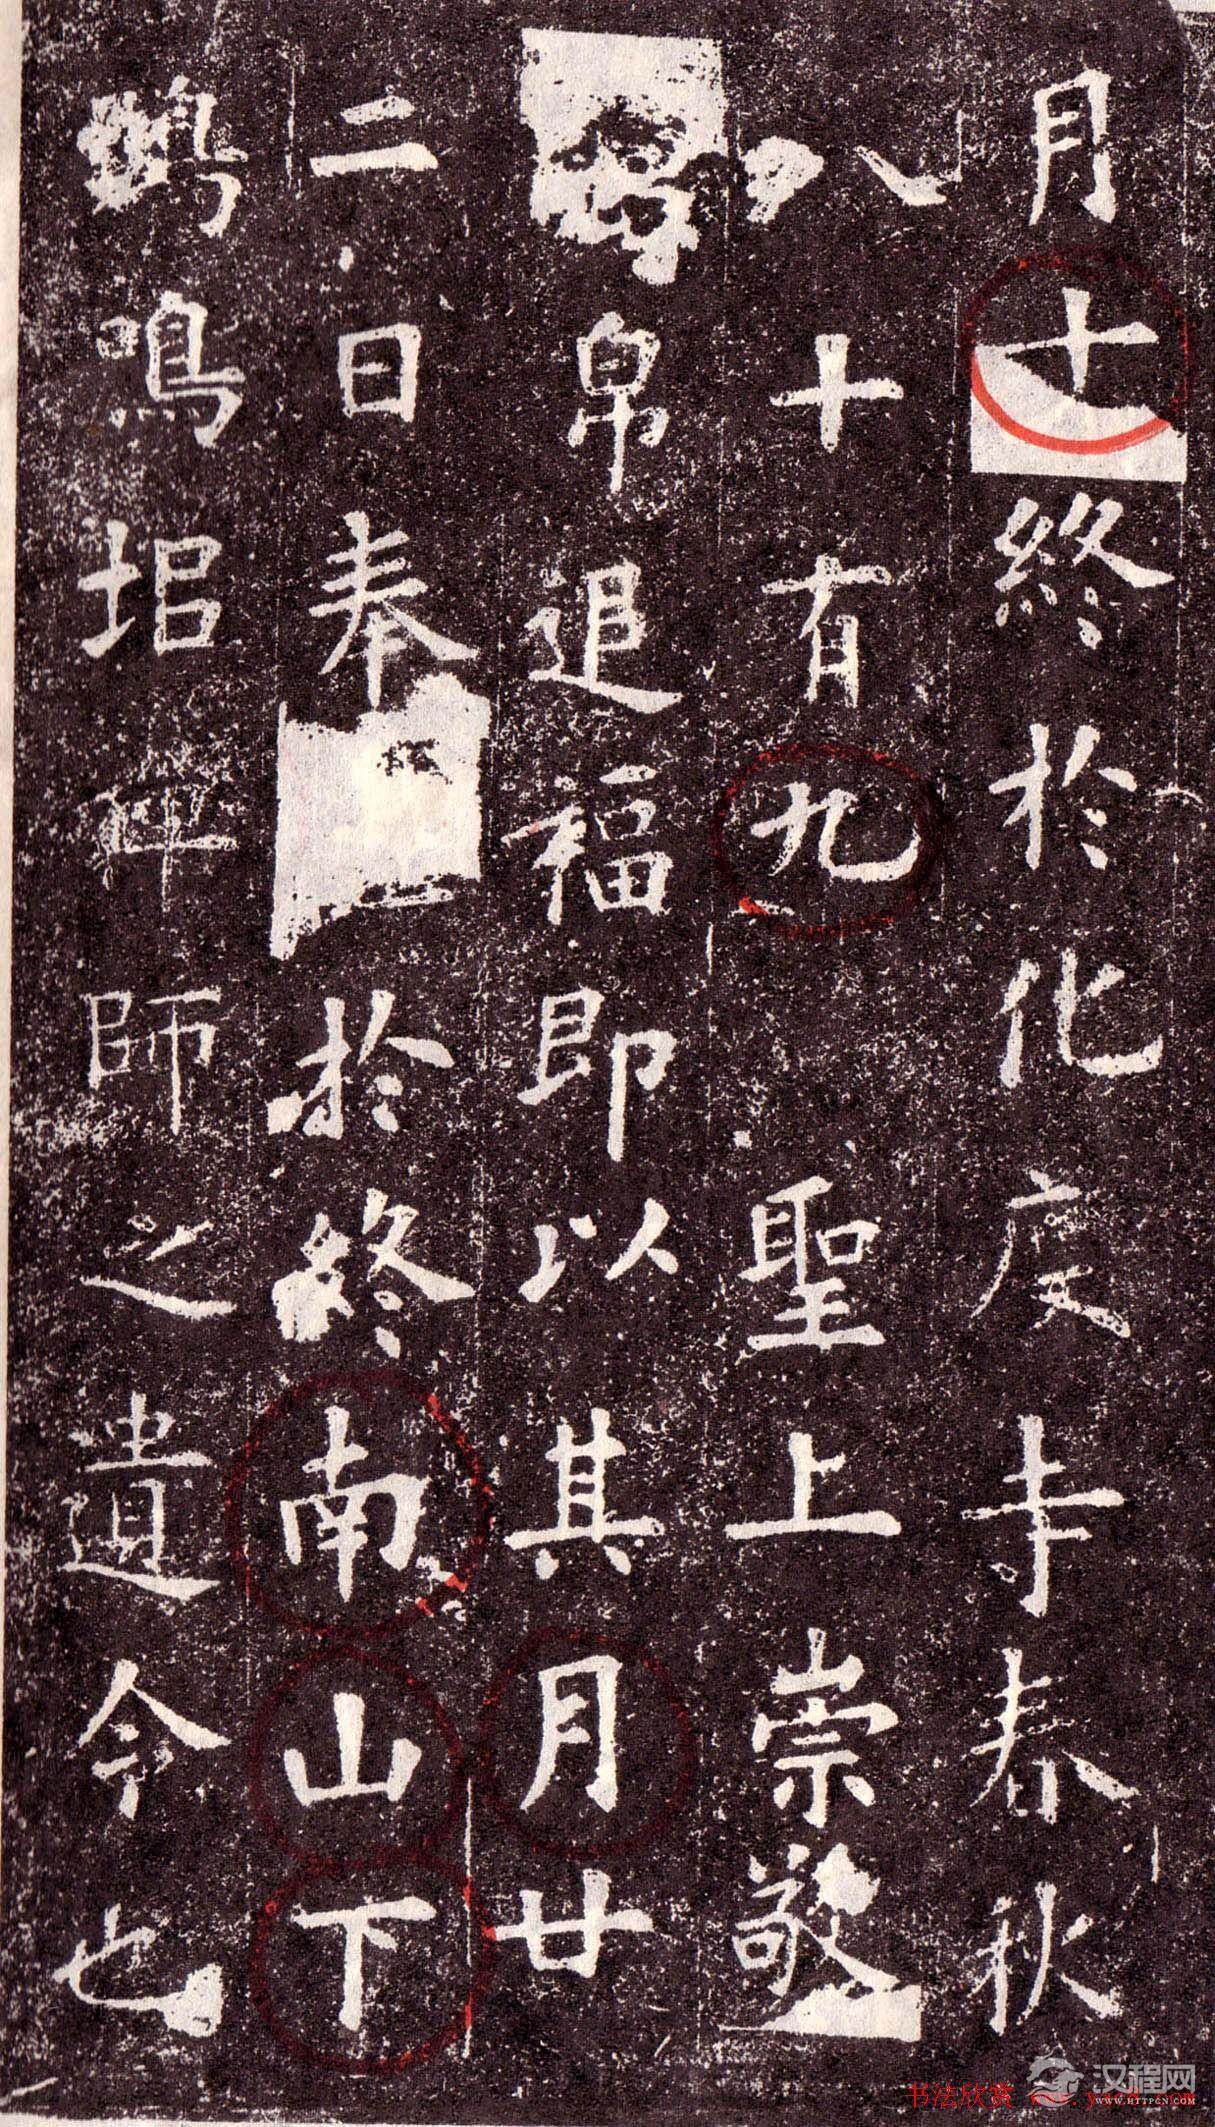 月十終於化度寺春秋
八十有九聖上崇敬
帛追福即以其月廿
二日奉於終南山下
鴟鳴堆師之遺令也
书法欣赏
汉程网
WWW.HTTPCN.COM